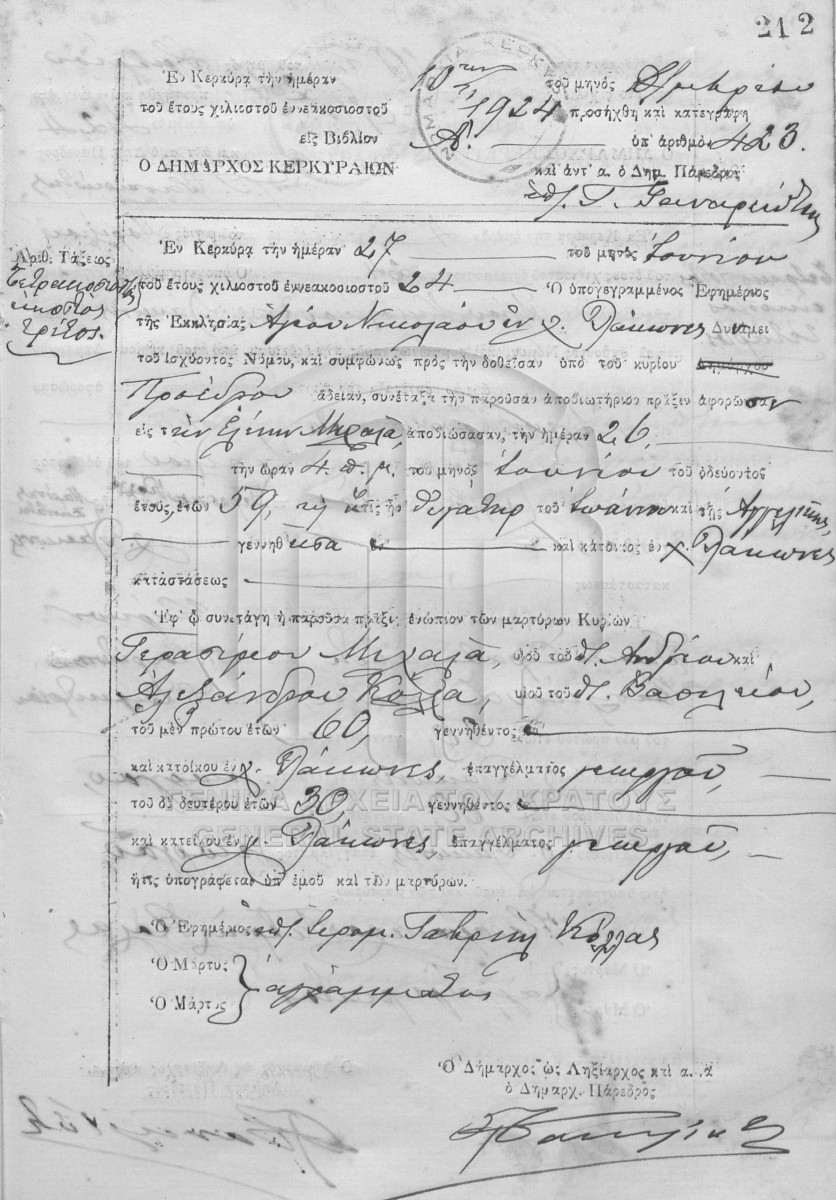 212
Ἐν Κερκύρᾳ τὴν ἡμέραν 10 τοῦ μηνός
τοῦ ἔτους χιλιοστοῦ ἐννεακοσιοστοῦ 1924 προσήχθη καὶ κατεγράφη
εἰς Βιβλίον Α. ὑπ' ἀριθμὸν 423.
Ο ΔΗΜΑΡΧΟΣ ΚΕΡΚΥΡΑΙΩΝ
καὶ ἀντ' α. ὁ Δημ. Πάρεδρος
Ἀριθ. Τάξεως
Τετρακοσιοστὸς
εἰκοστὸς
τρίτος.
Ἐν Κερκύρᾳ τὴν ἡμέραν 27 τοῦ μηνὸς Ἰουνίου
τοῦ ἔτους χιλιοστοῦ ἐννεακοσιοστοῦ 24 Ὁ ὑπογεγραμμένος Ἐφημέριος
τῆς Ἐκκλησίας Ἁγίου Νικολάου ἐν χ. Λάκωνες Δυνάμει
τοῦ ἰσχύοντος Νόμου, καὶ συμφώνως πρὸς τὴν δοθεῖσαν ὑπὸ τοῦ κυρίου Δημάρχου
Προέδρου ἄδειαν, συνέταξα τὴν παροῦσαν ἀποβιωτήριον πρᾶξιν ἀφορῶσαν
εἰς τὴν Ἑλένην Μιχαλᾶ, ἀποβιώσασαν, τὴν ἡμέραν 26,
τὴν ὥραν 4. π. μ. τοῦ μηνὸς Ἰουνίου τοῦ ὁδεύοντος
ἔτους, ἐτῶν 59, ἥτις ἦν θυγάτηρ τοῦ Ἰωάννου καὶ τῆς Ἀγγελικῆς,
γεννηθεῖσα καὶ κάτοικος ἐν χ. Λάκωνες
καταστάσεως
Ἐφ' ᾧ συνετάγη ἡ παροῦσα πρᾶξις ἐνώπιον τῶν μαρτύρων Κυρίων
Γερασίμου Μιχαλᾶ, υἱοῦ τοῦ π. Ἀνδρέου καὶ
Ἀλεξάνδρου Κόλλα, υἱοῦ τοῦ π. Βασιλείου,
τοῦ μὲν πρώτου ἐτῶν 60, γεννηθέντος
καὶ κατοίκου ἐν χ. Λάκωνες, ἐπαγγέλματος γεωργοῦ,
τοῦ δὲ δευτέρου ἐτῶν 30, γεννηθέντος
ΓΕΝΙΚΑ ΑΡΧΕΙΑ ΤΟΥ ΚΡΑΤΟΥΣ
GENERAL STATE ARCHIVES
καὶ κατοίκου ἐν χ. Λάκωνες, ἐπαγγέλματος γεωργοῦ,
ἥτις ὑπογράφεται ὑπ' ἐμοῦ καὶ τῶν μαρτύρων.
Ὁ Ἐφημέριος Ἱερομ. Γαβριὴλ Κόλλας
Ὁ Μάρτυς
Ὁ Μάρτυς
ἀγράμματοι
Ὁ Δήμαρχος ὡς Ληξίαρχος καὶ α. ἀ
ὁ Δημαρχ. Πάρεδρος